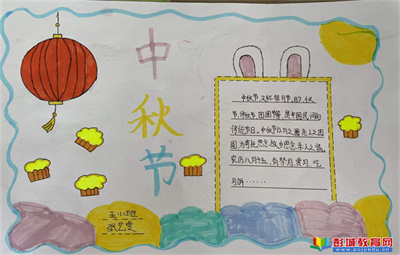 中
秋
节
中秋节,又称祭月节、月
节、仲秋节、团圆节等,是中国民间的
传统节日。中秋节以月之圆兆人之团
圆,为寄托思念故乡,思念亲人之情。
农历八月十五,有祭月、赏月、吃
月饼……
彭城教育网
www.pcjyedu.cn